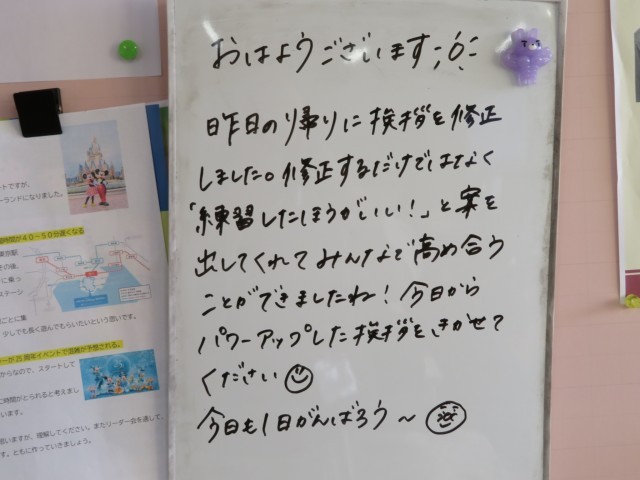 おはようございます
昨日の帰りに挨拶を修正
しました。修正するだけではなく
「練習したほうがいい！」と案を
出してくれてみんなで高め合う
ことができましたね！今日から
パワーアップした挨拶をきかせて
ください
今日も1日がんばろう〜
ートですが、
ーランドになりました。
時間が４０～５０分遅くなる
東京駅
その後、
に乗っ
ステージ
ごとに集
少しでも長く遊んでもらいたいという思いです。
ーが25周年イベントで混雑が予想される。
からなので、スタートして
に時間がとられると考えまし
います。
思いますが、理解してください。またリーダー会を通して、
す。ともに作っていきましょう。